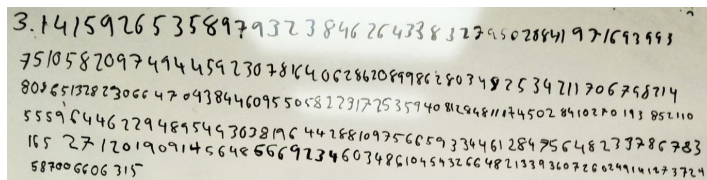 3.14159265358979323846264338327950288419716939937
75105820974944592307816406286208998628034825342117067982​14
8086513282306647093844609550582231725359408128481117450284102701938521​10
55596446229489549303819644288109756659334461284756482337867​83
165 271201909145648566923460348610454326648213393607260249141273724
587006606315